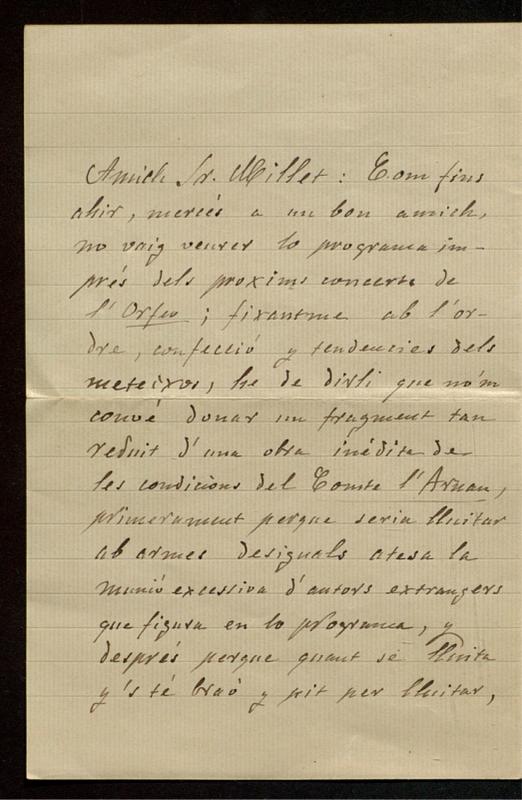 Amich Sr. Millet: Com fins
ahir, mercés a un bon amich,
no vaig veurer lo programa im-
prés dels proxims concerts de
l'Orfeo; fixantme ab l'or-
dre, confecció y tendencies dels
meteixos, he de dirli que no'm
convé donar un fragment tan
reduit d'una obra inédita de
les condicions del Comte l'Arnau,
primerament perque seria lluitar
ab armes desiguals atesa la
munió excessiva d'autors extrangers
que figura en lo programa, y
després perque quant se lluita
y's té braó y pit per lluitar,